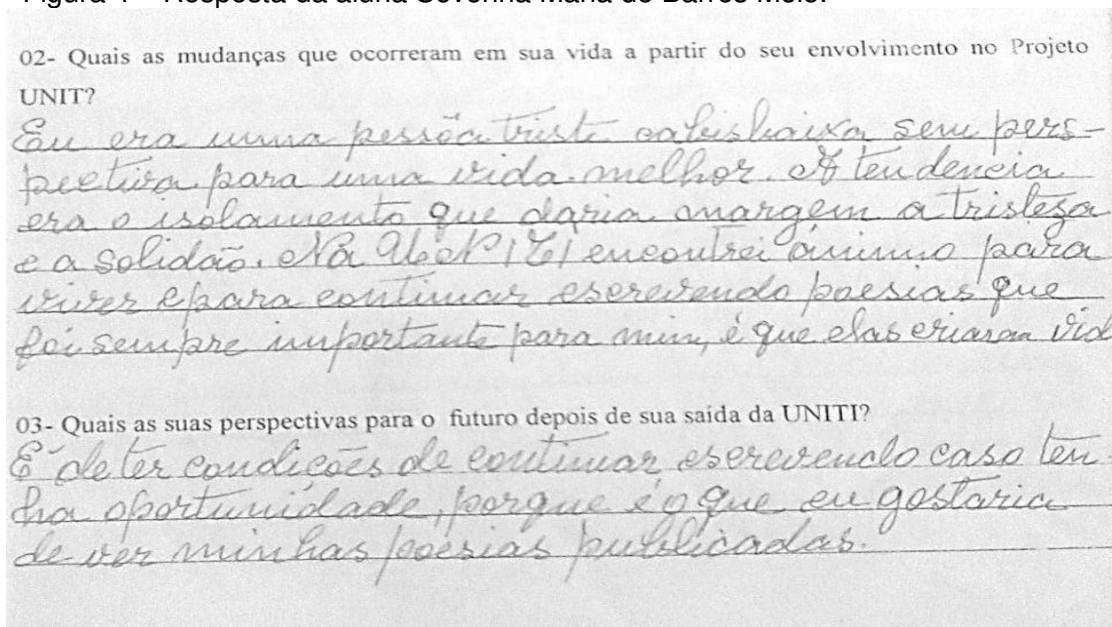 02- Quais as mudanças que ocorreram em sua vida a partir do seu envolvimento no Projeto
UNIT?
Eu era uma pessôa triste cabisbaixa sem pers-
pectiva para uma vida melhor. A tendencia
era o isolamento que daria margem a tristeza
e a solidão. Na encontrei ânimo para
viver e para continuar escrevendo poesias que
foi sempre importante para mim, é que elas criaram vid
03- Quais as suas perspectivas para o futuro depois de sua saída da UNITI?
É de ter condições de continuar escrevendo caso ten
ha oportunidade, porque é o que eu gostaria
de ver minhas poésias publicadas.